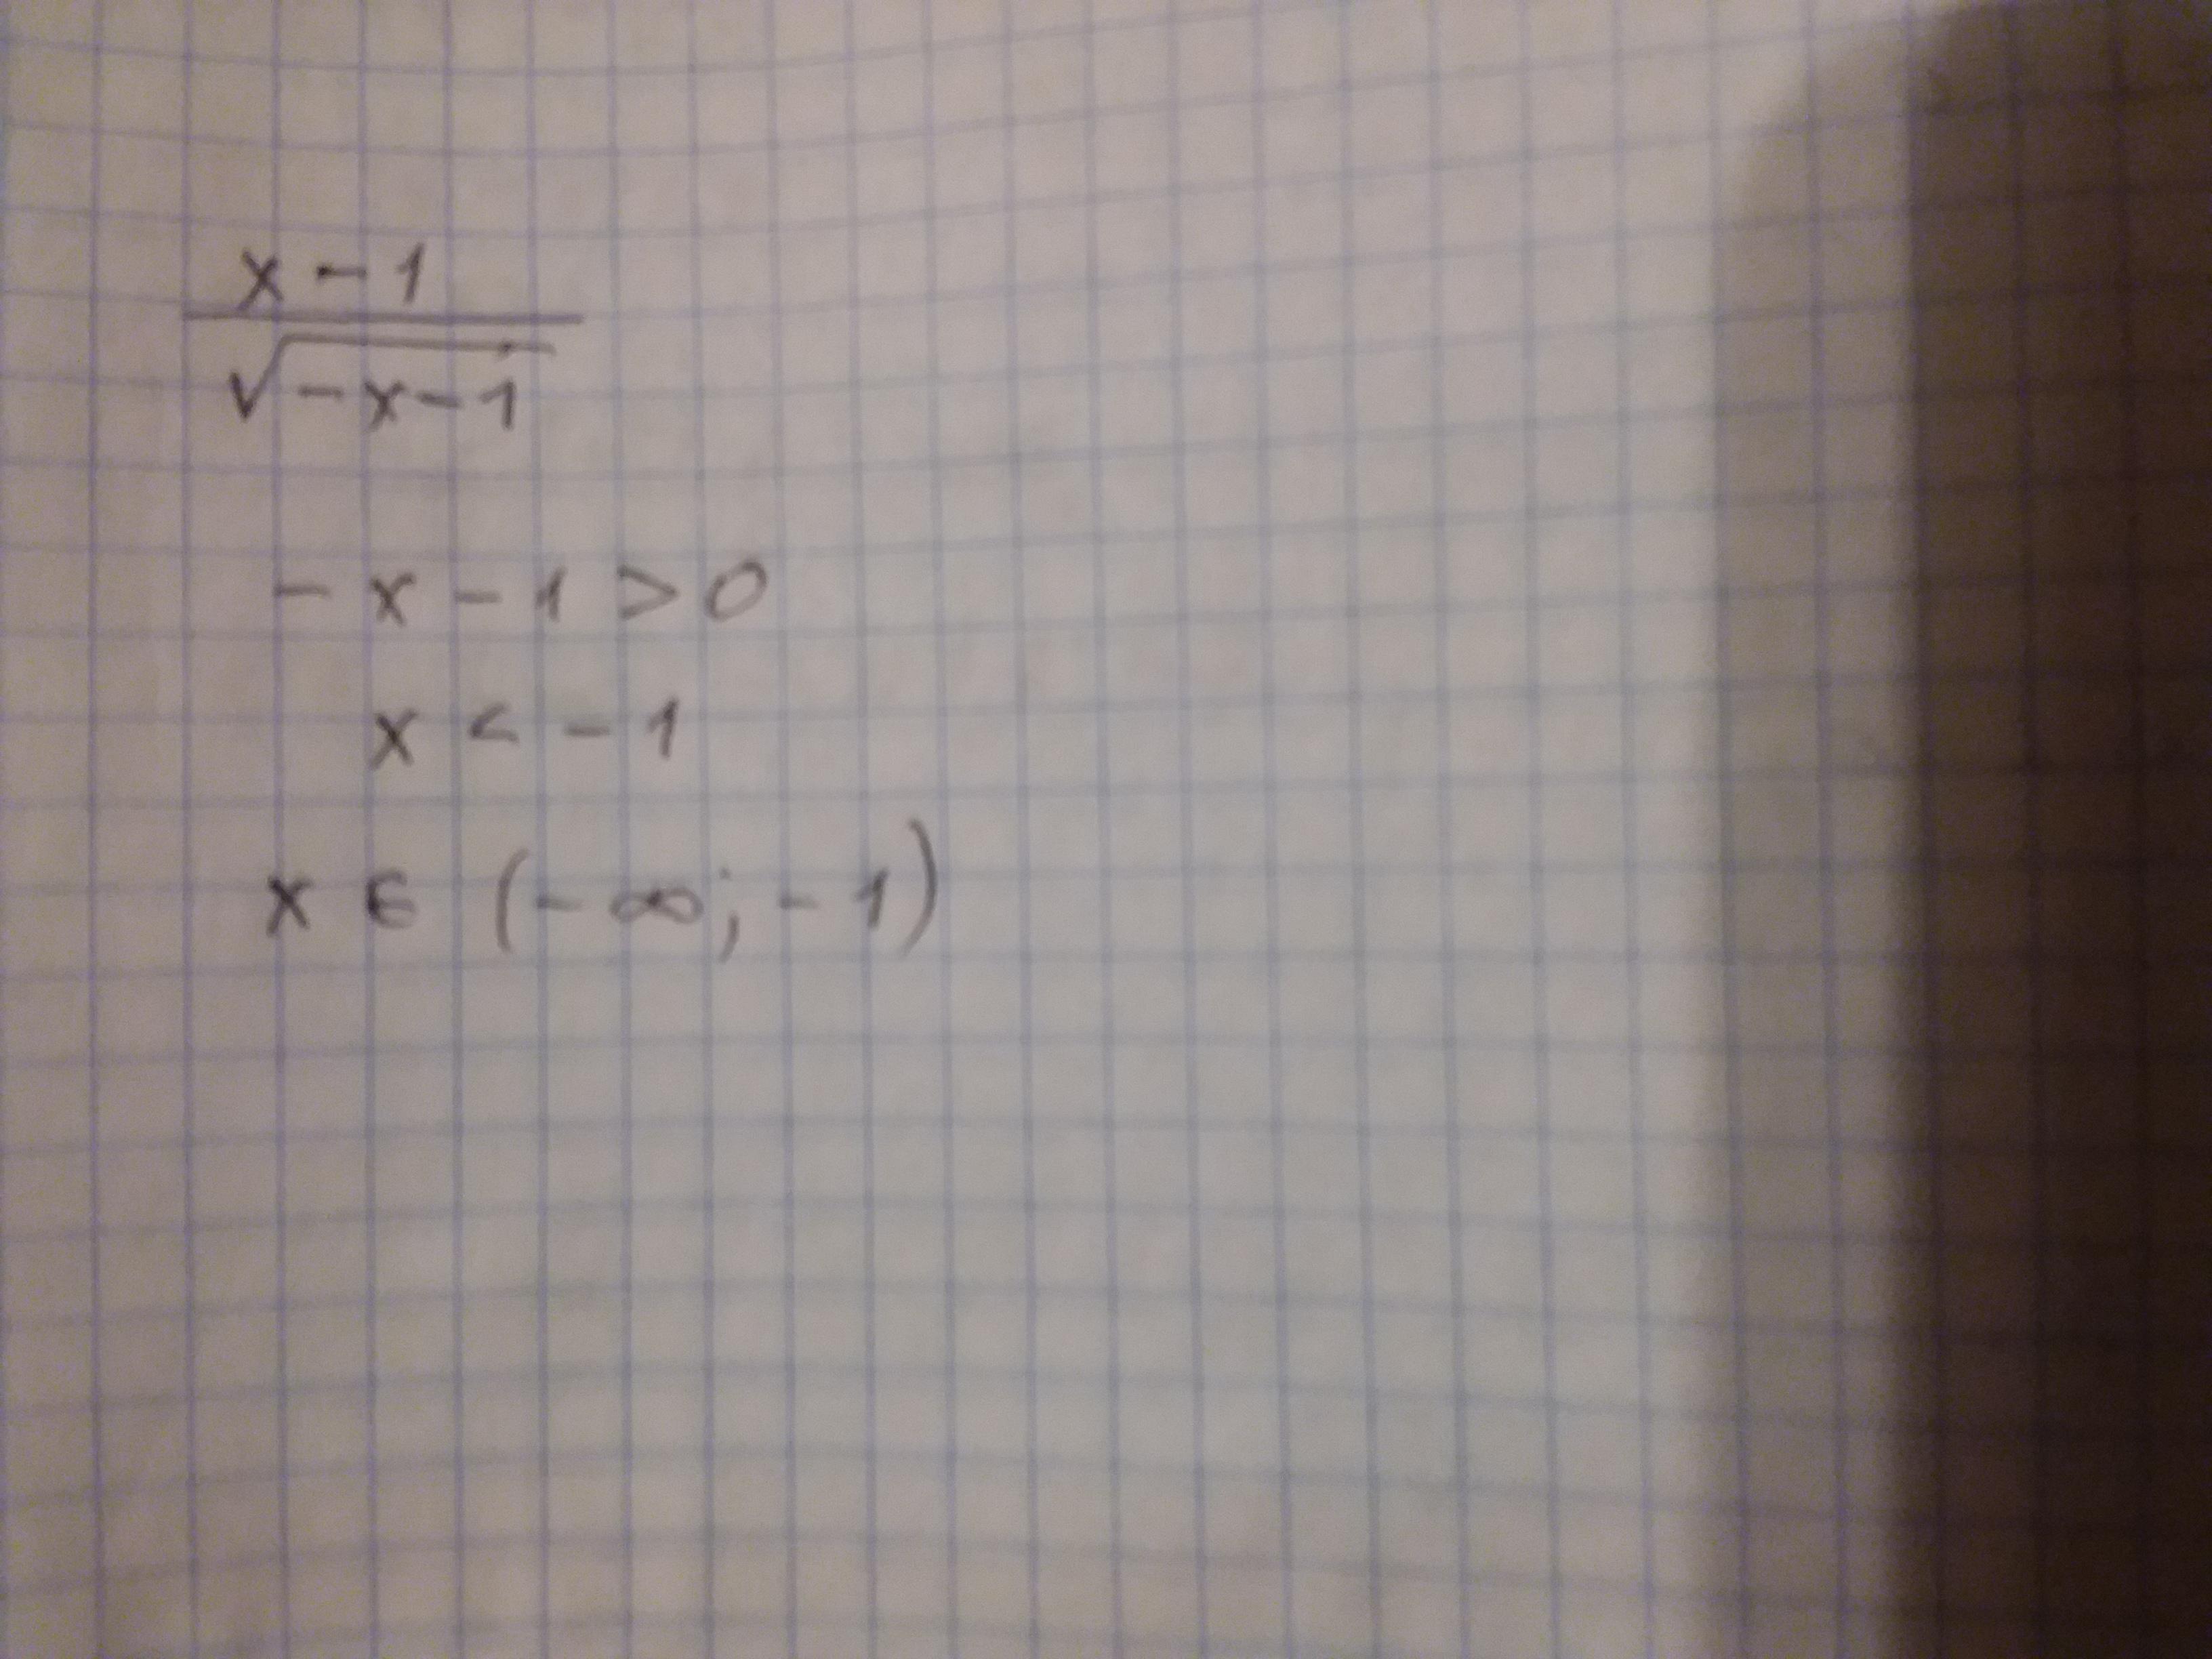 x - 1
√-x-1
- x - 1 > 0
x < - 1
x ∈ (- ∞; - 1)